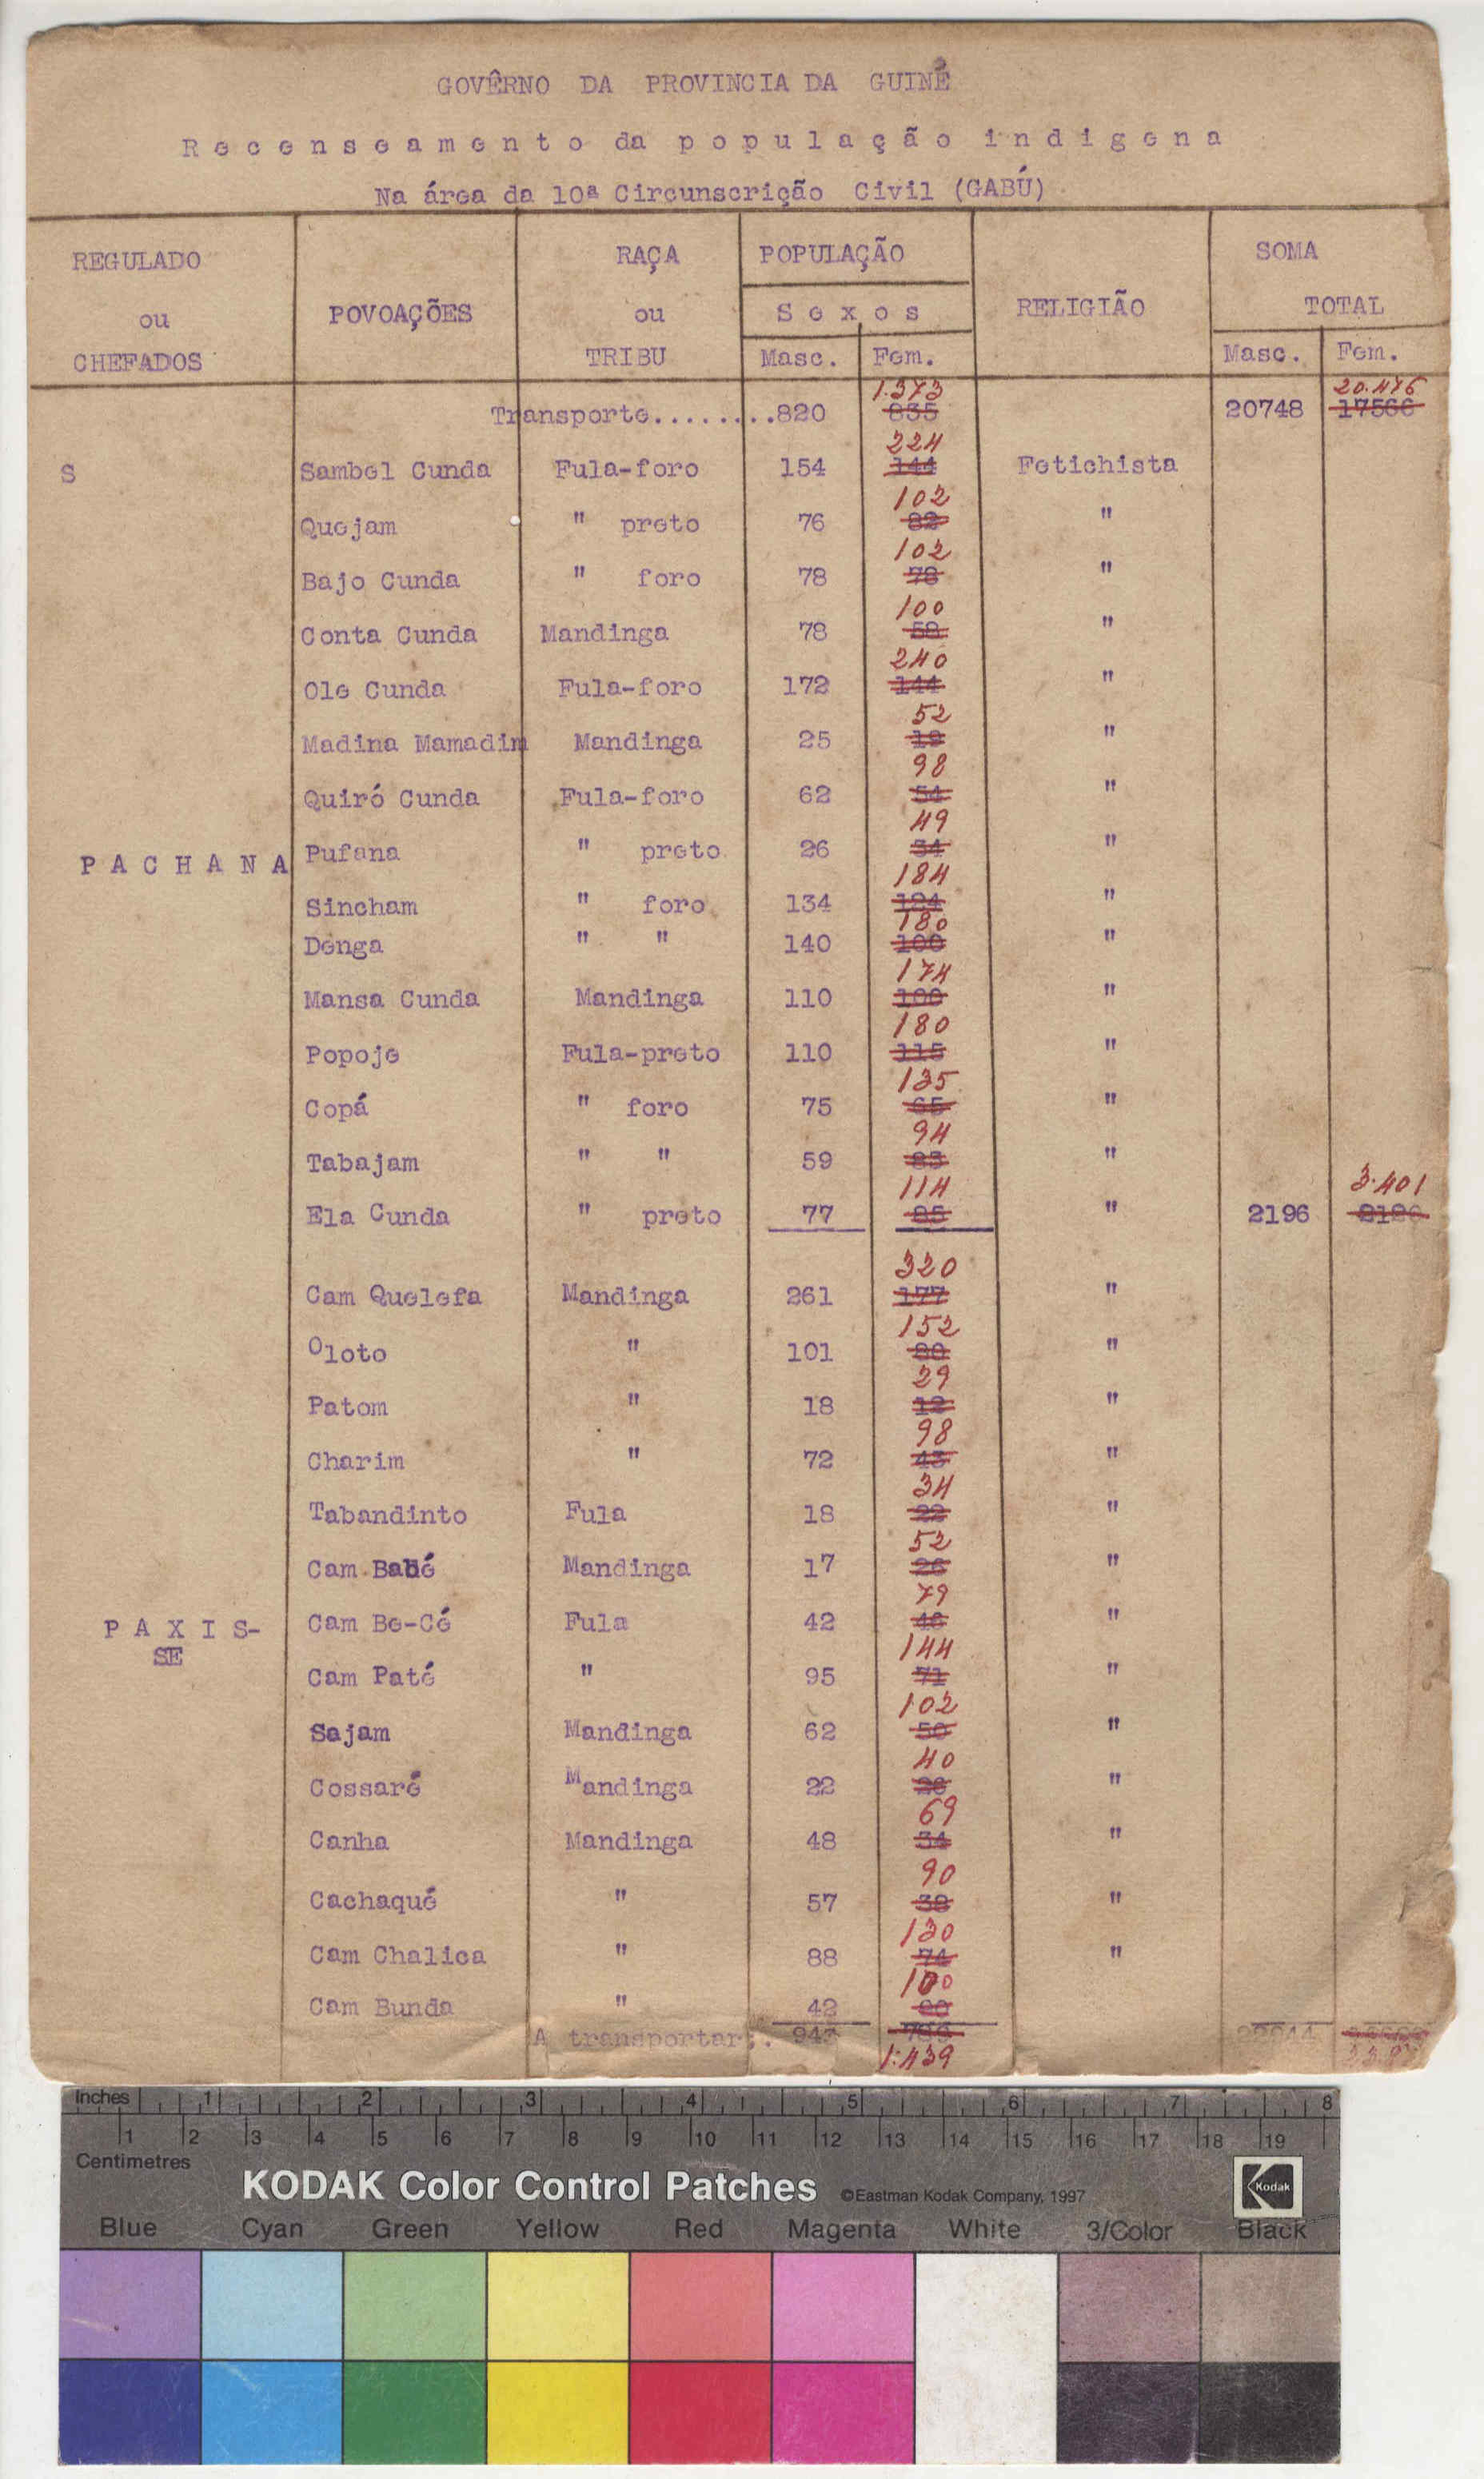 GOVÊRNO DA PROVINCIA DA GUINÉ
Recenseamento da população indigena
Na área da 10ª Circunscrição Civil (GABÚ)
REGULADO ou CHEFADOS
POVOAÇÕES
RAÇA ou TRIBU
POPULAÇÃO
Sexos
Masc. Fem.
RELIGIÃO
SOMA TOTAL
Masc. Fem.
1.373 20.476
Transporte.........820 835 20748 17566
224
S Sambel Cunda Fula-foro 154 144 Fetichista
102
Quejam " preto 76 82 "
102
Bajo Cunda " foro 78 78 "
100
Conta Cunda Mandinga 78 58 "
240
Ole Cunda Fula-foro 172 144 "
52
Madina Mamadim Mandinga 25 19 "
98
Quiró Cunda Fula-foro 62 54 "
49
PACHANA Pufana " preto 26 34 "
184
Sincham " foro 134 124 "
180
Denga " " 140 100 "
174
Mansa Cunda Mandinga 110 100 "
180
Popoje Fula-preto 110 115 "
135
Copá " foro 75 65 "
94
Tabajam " " 59 83 "
114 3.401
Ela Cunda " preto 77 85 " 2196 2120
320
Cam Quelefa Mandinga 261 177 "
152
Oloto " 101 80 "
29
Patom " 18 12 "
98
Charim " 72 43 "
34
Tabandinto Fula 18 22 "
52
Cam Babé Mandinga 17 26 "
79
PAXIS-SE Cam Be-Cé Fula 42 46 "
144
Cam Paté " 95 71 "
102
Sajam Mandinga 62 50 "
40
Cossaré Mandinga 22 "
69
Canha Mandinga 48 34 "
90
Cachaqué " 57 38 "
130
Cam Chalica " 88 74 "
100
Cam Bunda " 42
A transportar:. 943
1.439
Inches 1 2 3 4 5 6 7 8
1 2 3 4 5 6 7 8 9 10 11 12 13 14 15 16 17 18 19
Centimetres
KODAK Color Control Patches ©Eastman Kodak Company, 1997 Kodak
Blue Cyan Green Yellow Red Magenta White 3/Color Black